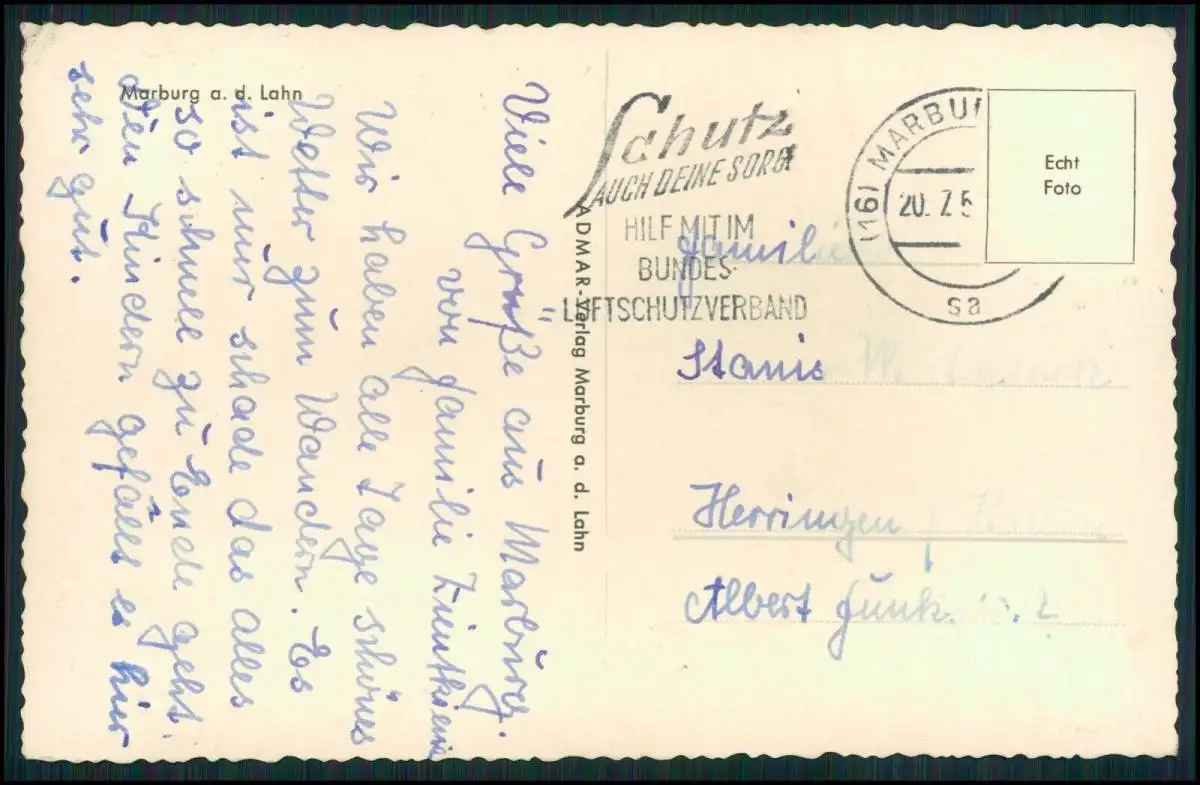 Marburg a. d. Lahn
Viele Grüße aus Marburg.
von Familie
Wir haben alle Tage schönes
Wetter zum Wandern. Es
ist nur schade das alles
so schnell zu Ende geht.
Den Kindern gefällt es hir
sehr gut.
ADMAR-Verlag Marburg a. d. Lahn
Schutz
AUCH DEINE SORGE
HILF MIT IM
BUNDES-
LUFTSCHUTZVERBAND
(16) MARBU
20. 7. 5
sa
Echt
Foto
Familie
Stanis
Herringen
Albert Funk